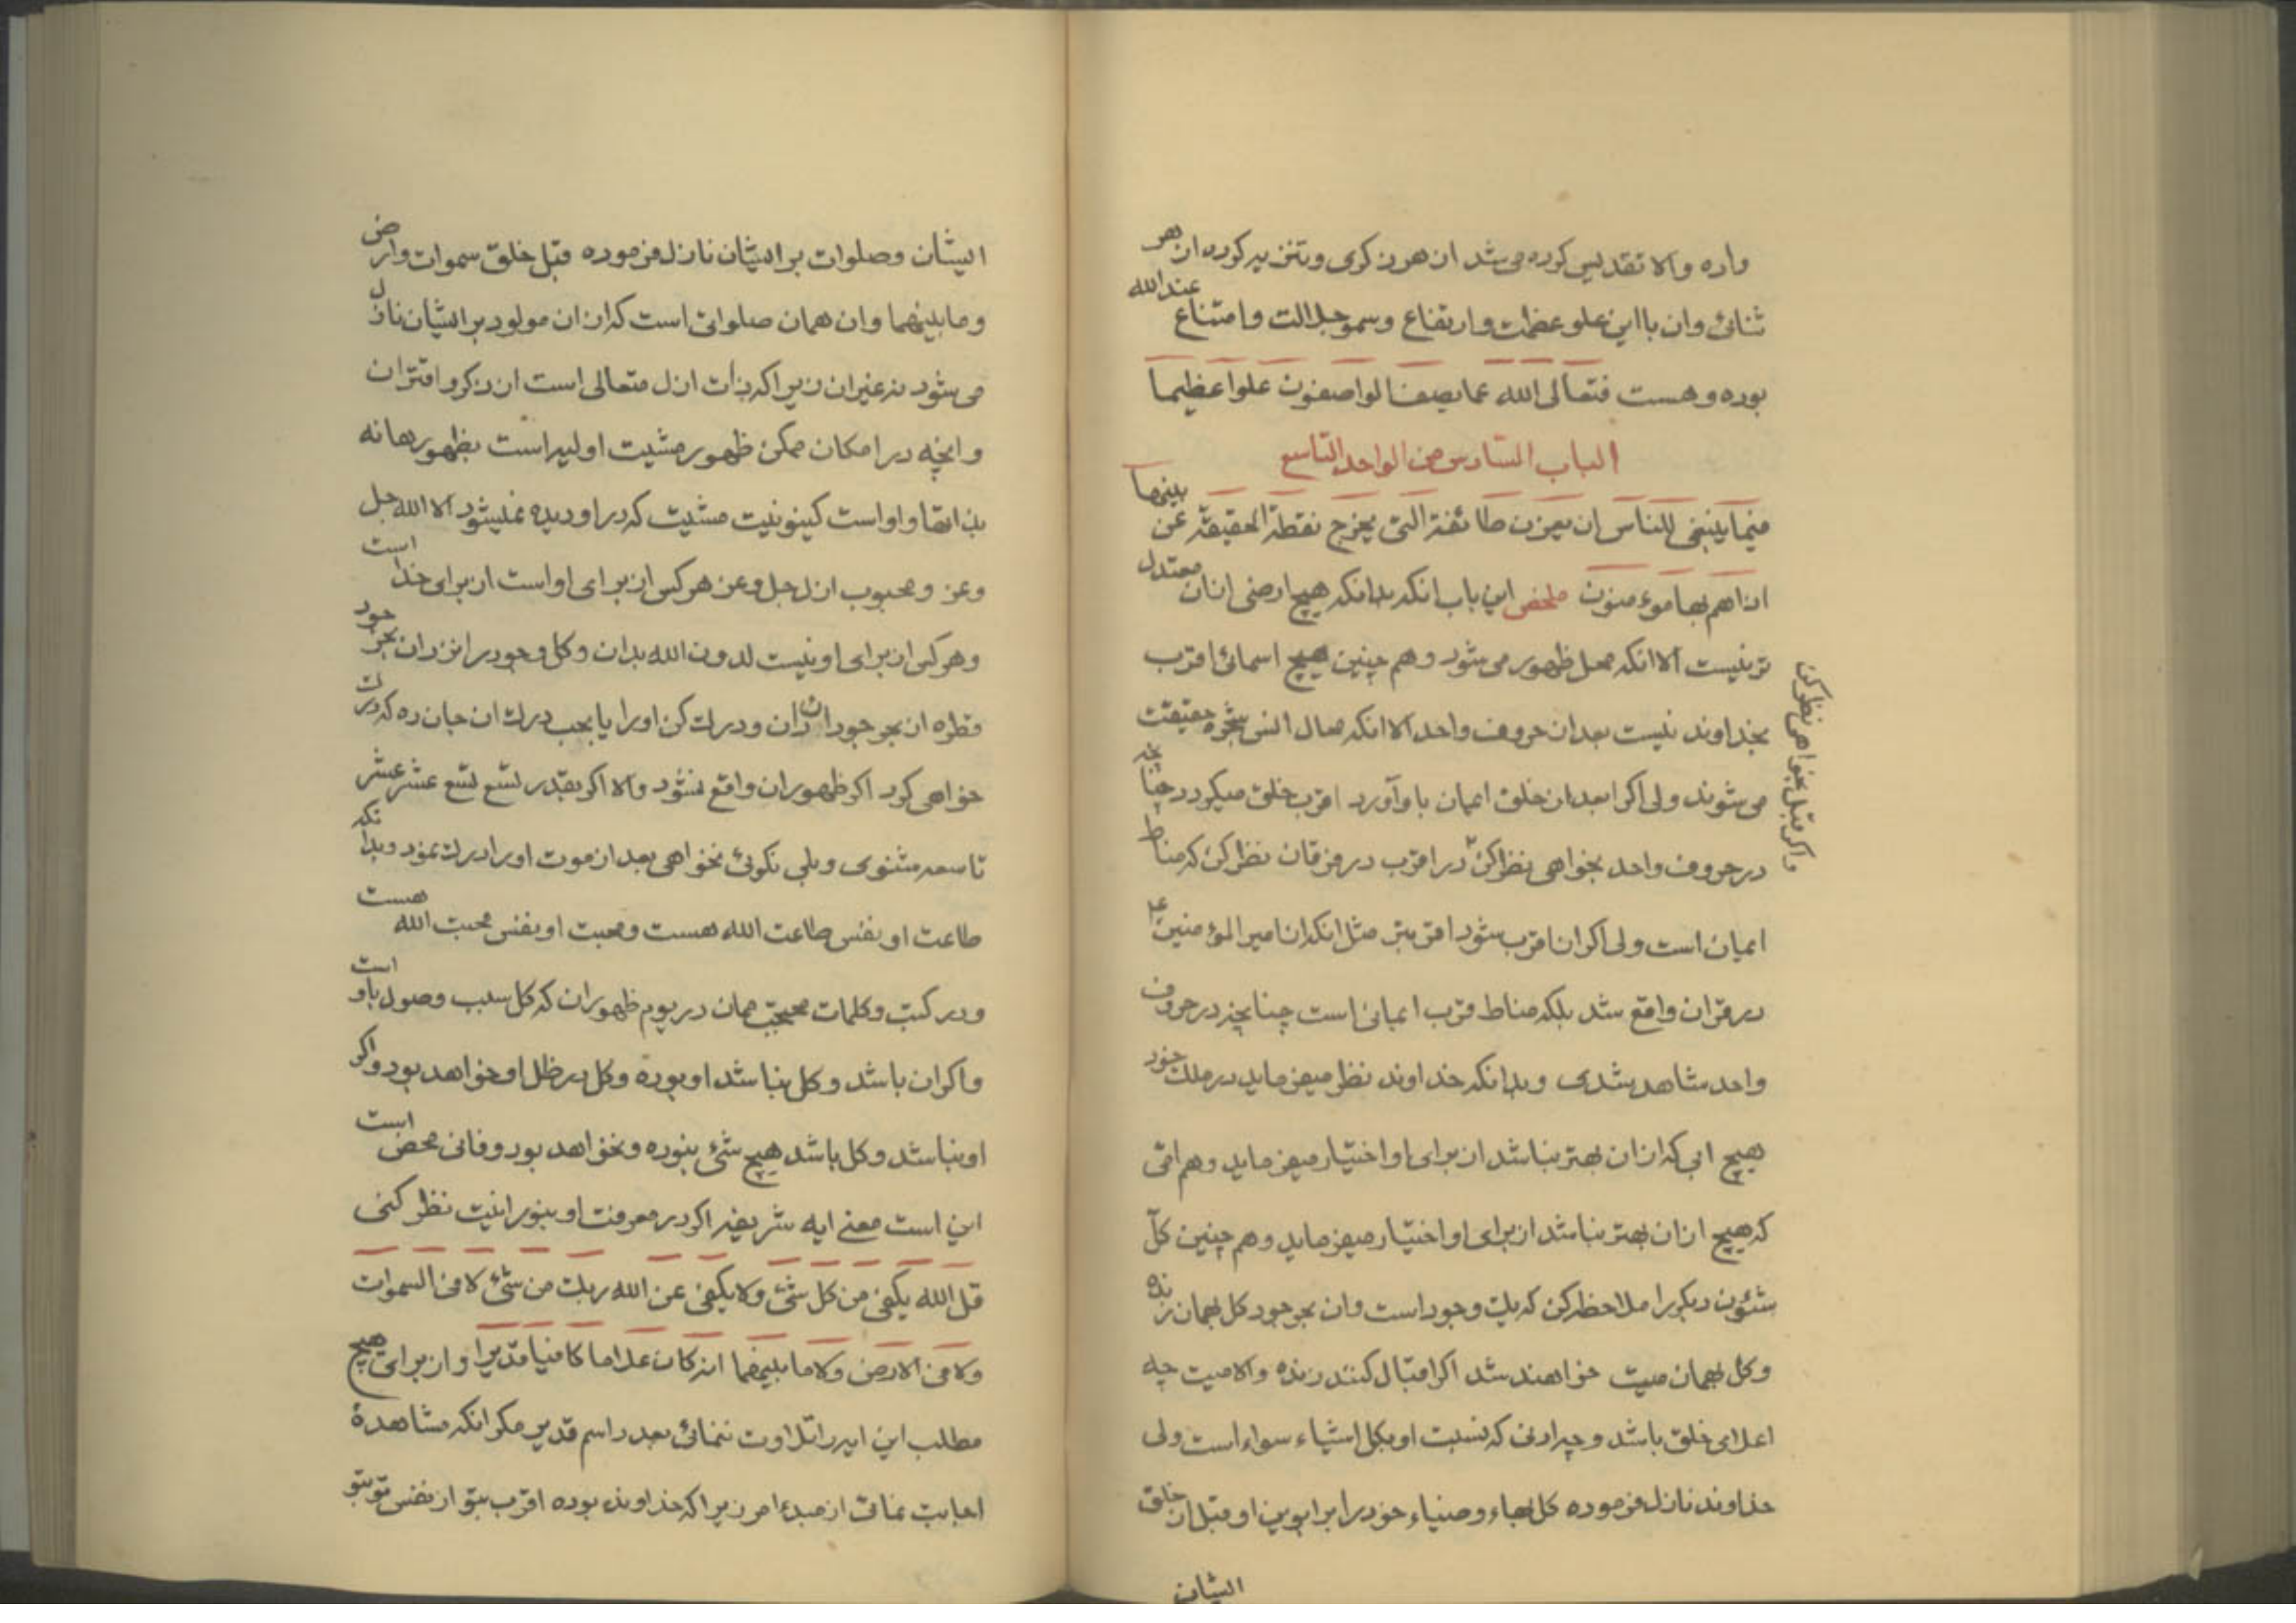 داده والا تقدیس کرده می شد از هر ذکری و تنزیه کرده از هر
ثنائی وان با این علو عظمت و ارتفاع و سمو جلالت و امتناع عندالله
بوده و هست فتعالی الله عما یصف الواصفون علوا عظیما
الباب السادس من الواحد التاسع
فیما ینبغی للناس ان یعزن طائفة التی یخرج نقطة الحقیقة عن بینها
اذا هم بها مؤمنون ملخص این باب انکه بدانکه هیچ ارضی از ان معتدل
تر نیست الا انکه محل ظهور می شود و هم چنین هیچ اسمائی اقرب
بخداوند نیست بعد از حروف واحد الا انکه صال النس شجره حقیقت
می شوند ولی اگر ابعد از خلق ایمان باو آورد اقرب خلق میگردد چنانچه
در حروف واحد بخواهی نظر کن در اقرب در فرقان نظر کن که مناط
واگر قبل بخواهی نظر کن
ایمان است ولی اگر ان اقرب شود اقرب تر مثل انکه از امیر المؤمنین ع
در قران واقع شد بلکه مناط قرب ایمانی است چنانچه در حروف
واحد مشاهده شدی و بدانکه خداوند نظر میفرماید در ملک خود
هیچ ابی که از ان بهتر نباشد از برای او اختیار میفرماید و هم امی
که هیچ از ان بهتر نباشد از برای او اختیار میفرماید و هم چنین کل
شئون دیگر را ملاحظه کن که یک وجود است وان بوجود کل بهمان زنده
و کل بهمان میت خواهند شد اگر اقبال کنند زنده والا میت چه
اعلای خلق باشد و چه ادنی که نسبت او بکل اشیاء سواء است ولی
خداوند نازل فرموده کل بهاء و ضیاء خود را بر ابوین او قبل از خلق
ایشان
ایشان و صلوات بر ایشان نازل فرموده قبل خلق سموات و ارض
و ما بینهما وان همان صلواتی است که از ان مولود بر ایشان نازل
می شود نه غیر ان زیرا که ذات ازل متعالی است از ذکر و اقتران
وانچه در امکان ممکن ظهور مشیت اولیه است بظهورها له
بذاتها و او است کینونیت مشیت که در او دیده نمیشود الا الله جل
و عز و محبوب ازل جل و عز هر کس از برای او است از برای خدا است
و هر کس از برای او نیست لدون الله بدان و کل وجود را نزد ان بحر جود
قطره از بحر جود ان دان و درک کن او را یا بحب درک ان جان ده که درک
خواهی کرد اگر ظهور ان واقع نشود والا اگر بقدر تسع تسع عشر عشر
تاسعه مشنوی و بلی نگوئی نخواهی بعد از موت او را درک نمود و بدانکه
طاعت او بنفس طاعت الله هست و محبت او بنفس محبت الله هست
و در کتب و کلمات محتجب ممان در یوم ظهور ان که کل سبب وصول باو است
واگر ان باشد و کل نباشد او بوده و کل در ظل او خواهد بود و اگر
او نباشد و کل باشد هیچ شئ نبوده و نخواهد بود و فانی محض است
این است معنی ایه شریفه اگر در معرفت او بنورانیت نظر کنی
قل الله یکفی من کل شئ و لا یکفی عن الله ربک من شئ لا فی السموات
ولا فی الارض ولا ما بینهما انه کان علاما کافیا قدیرا و از برای هیچ
مطلب این ایه را تلاوت ننمائی بعدد اسم قدیر مگر انکه مشاهده
اجابت نمائی از مبدء امر زیرا که خداوند بوده اقرب بتو از نفس تو بتو